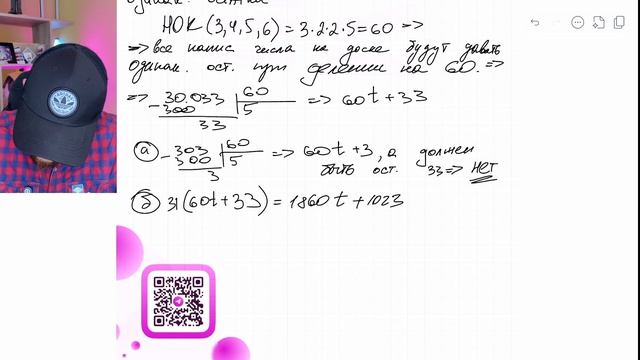 НОК (3,4,5,6) = 3·2·2·5 = 60 =>
=> все напис. числа на доске будут давать
одинак. ост. при делении на 60. =>
=> 30.033 | 60 => 60t + 33
300 | 5
33
а) 303 | 60 => 60t + 3, а должен
300 | 5 быть ост. 33 => НЕТ
3
б) 31(60t + 33) = 1860t + 1023
adidas